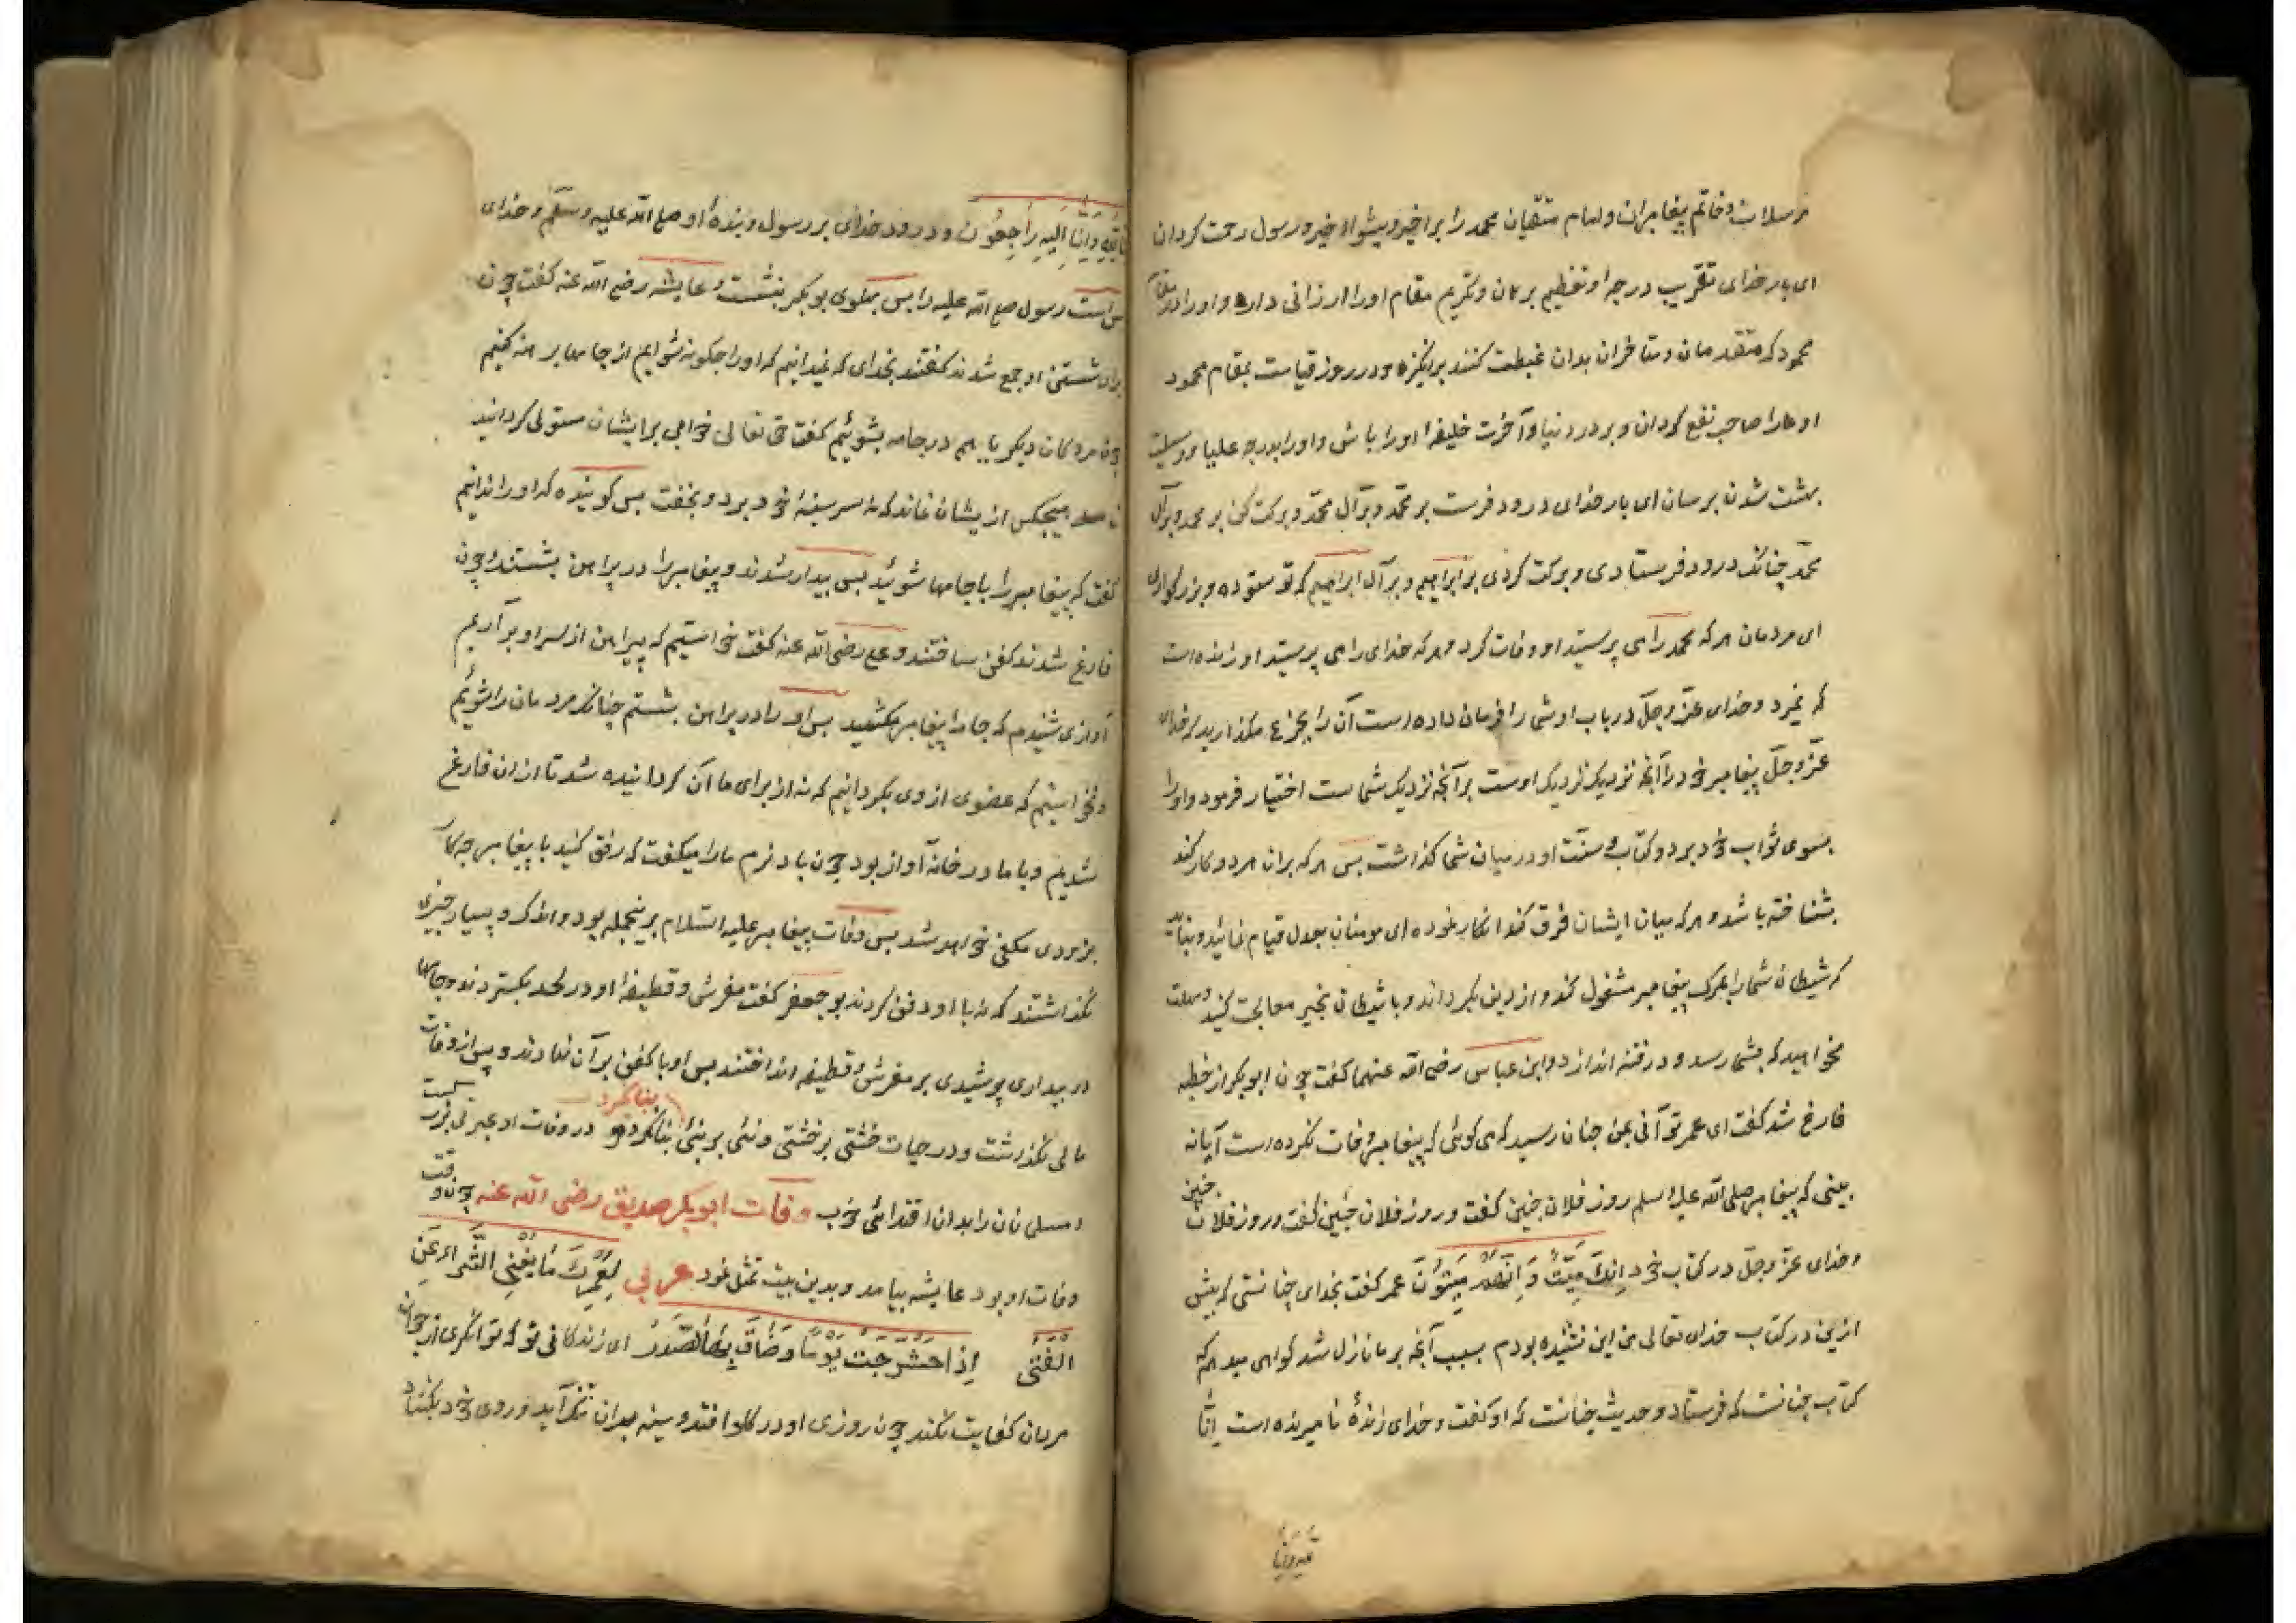 مرسلان و خاتم پیغامبران و امام متقیان محمد را برا خیر و پیشواء خیر و رسول رحمت کردان
ای بار خدای تقریب درجه او تعظیم برهان و تکریم مقام او را ارزانی دار و او را در مقام
محمود که متقدمان و متاخران بدان غبطت کنند برانکیز و در روز قیامت بمقام محمود
او ما را صاحب نفع کردان و بر در دنیا و آخرت خلیفهٔ او را باشی و او را بدرجه علیا و وسیلت
بهشت شدن برسان ای بار خدای درود فرست بر محمد و بر آل محمد و برکت کن بر محمد و بر آل
محمد چنانک درود فرستادی و برکت کردی بر ابراهیم و بر آل ابراهیم که تو ستوده و بزرکواری
ای مردمان هر که محمد را می پرستید او وفات کرد و هر که خدای را می پرستید او زنده است
که نمیرد و خدای عز و جل در باب او شما را فرمان داده است آن را بجزع مکذارید که خدای
عز و جل پیغامبر خود را آنچه نزدیک اوست بر آنچه نزدیک شماست اختیار فرمود و او را
بسوی ثواب خود برد و کتاب و سنت او در میان شما کذاشت پس هر که بران هر دو کار کند
شناخته باشد و هر که میان ایشان فرق کند انکار نموده ای مومنان بعدل قیام نمائید و نباید
که شیطان شما را بمرک پیغامبر مشغول کند و از دین بکرداند و با شیطان بخیر معالجت کنید و مهلت
مخواهید که بشما رسد و در فتنه اندازد و ابن عباس رضی الله عنهما کفت چون ابو بکر از خطبه
فارغ شد کفت ای عمر تو آنی بمن چنان رسید که می کوئی که پیغامبر وفات نکرده است آیا نه
بینی که پیغامبر صلی الله علیه و سلم روز فلان چنین کفت و روز فلان چنین کفت و روز فلان چنین
و خدای عز و جل در کتاب خود اِنَّكَ مَيِّتٌ وَ اِنَّهُمْ مَيِّتُونَ عمر کفت بخدای چنانستی که پیش
ازین در کتاب خدای تعالی من این نشنیده بودم بسبب آنچه بر ما نازل شد کواهی میدهم که
کتاب چنانست که فرستاد و حدیث چنانست که او کفت و خدای زندهٔ نامیرنده است اِنَّا
لله وانا
لله وَاِنَّا اِلَيْهِ رَاجِعُونَ و درود خدای بر رسول و بندهٔ او صلی الله علیه وسلم و خدای
رسول صلی الله علیه را پس پهلوی بو بکر بنشست و عایشه رضی الله عنه کفت چون
برای شستن او جمع شدند کفتند بخدای که نمیدانیم که او را چکونه شوایم از جامها برهنه کنیم
چون مردکان دیکر یا هم در جامه بشوئیم کفت حق تعالی خوابی بر ایشان مستولی کردانید
هیچکس از یشان نماند که نه سر سینهٔ خود برد و بخفت پس کوینده که او را ندانیم
کفت که پیغامبر را با جامها شوئید پس بیدار شدند و پیغامبر را در پیراهن بشستند و چون
فارغ شدند کفن ساختند و علی رضی الله عنه کفت خواستیم که پیراهن از سر او بر آریم
آوازی شنیدم که جامه پیغامبر مکشید پس او را در پیراهن بشستم چنانک مردمان را شوئیم
و نخواستیم که عضوی از وی بکردانیم که نه از برای ما آن کردانیده شد تا از ان فارغ
شدیم و با ما در خانه آواز بود چون باد نرم ما را میکفت که رفق کنید با پیغامبر چه کار
بزودی مکفی خواهد شد پس وفات پیغامبر علیه السلام برینجمله بود و اندک و بسیار چیزی
نکذاشتند که نه با او دفن کردند بو جعفر کفت مفرش و قطیفه او در لحد بکستردند و جامها
در بیداری پوشیدی بر مفرش و قطیفه انداختند پس او با کفن بر آن نهادند و پس از وفات
مالی نکذاشت و در حیات خشتی بر خشتی و نئی بر نئی بنا نکرد و در وفات او عبرتی
و مسلمانان را بدان اقتدائی خوب وفات ابو بکر صدیق رضی الله عنه چون وقت
وفات او بود عایشه بیامد و بدین بیت تمثل نمود عربی لَعَمْرُكَ مَا يُغْنِي الثَّرَاءُ عَنِ
الفَتٰى اِذَا حَشْرَجَتْ يَوْمًا وَضَاقَ بِهَا الصَّدْرُ ای زندکانی تو که توانکری از جوان
مردان کفایت نکند چون روزی او در کلو افتد و سینه بدان تنک آید و روی خود بکشاد